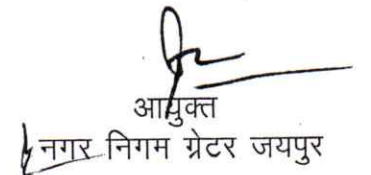 आयुक्त
नगर निगम ग्रेटर जयपुर